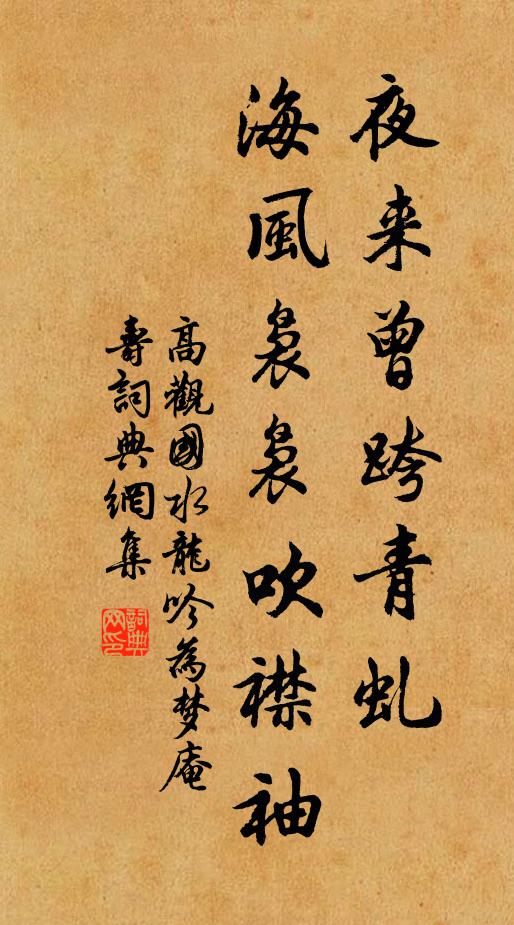 夜来曾跨青虬
海風裊裊吹襟袖
高觀國水龍吟為梦庵
壽詞典網集
詞典网印